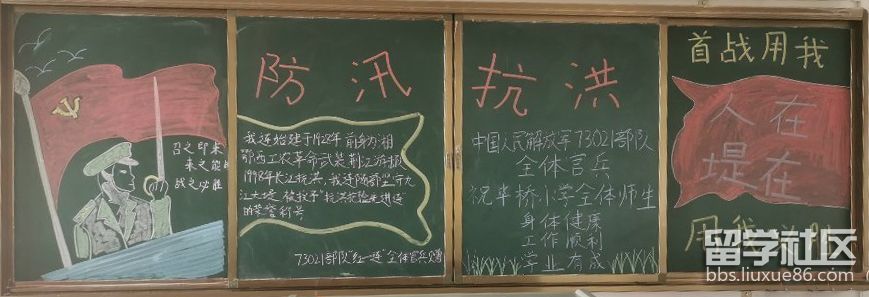 召之即来
来之能战
战之必胜
防汛
我连始建于1928年前身为湘
鄂西工农革命武装荆江游击队
1998年长江抗洪,我连防部坚守九
江大堤 被授予"抗洪抢险先进连"
的荣誉称号
73021部队"红一连"全体官兵赠
抗洪
中国人民解放军73021部队
全体官兵
祝华桥小学全体师生
身体健康
工作顺利
学业有成
首战用我
人在
堤在
用我
留学社区
bbs.liuxue86.com